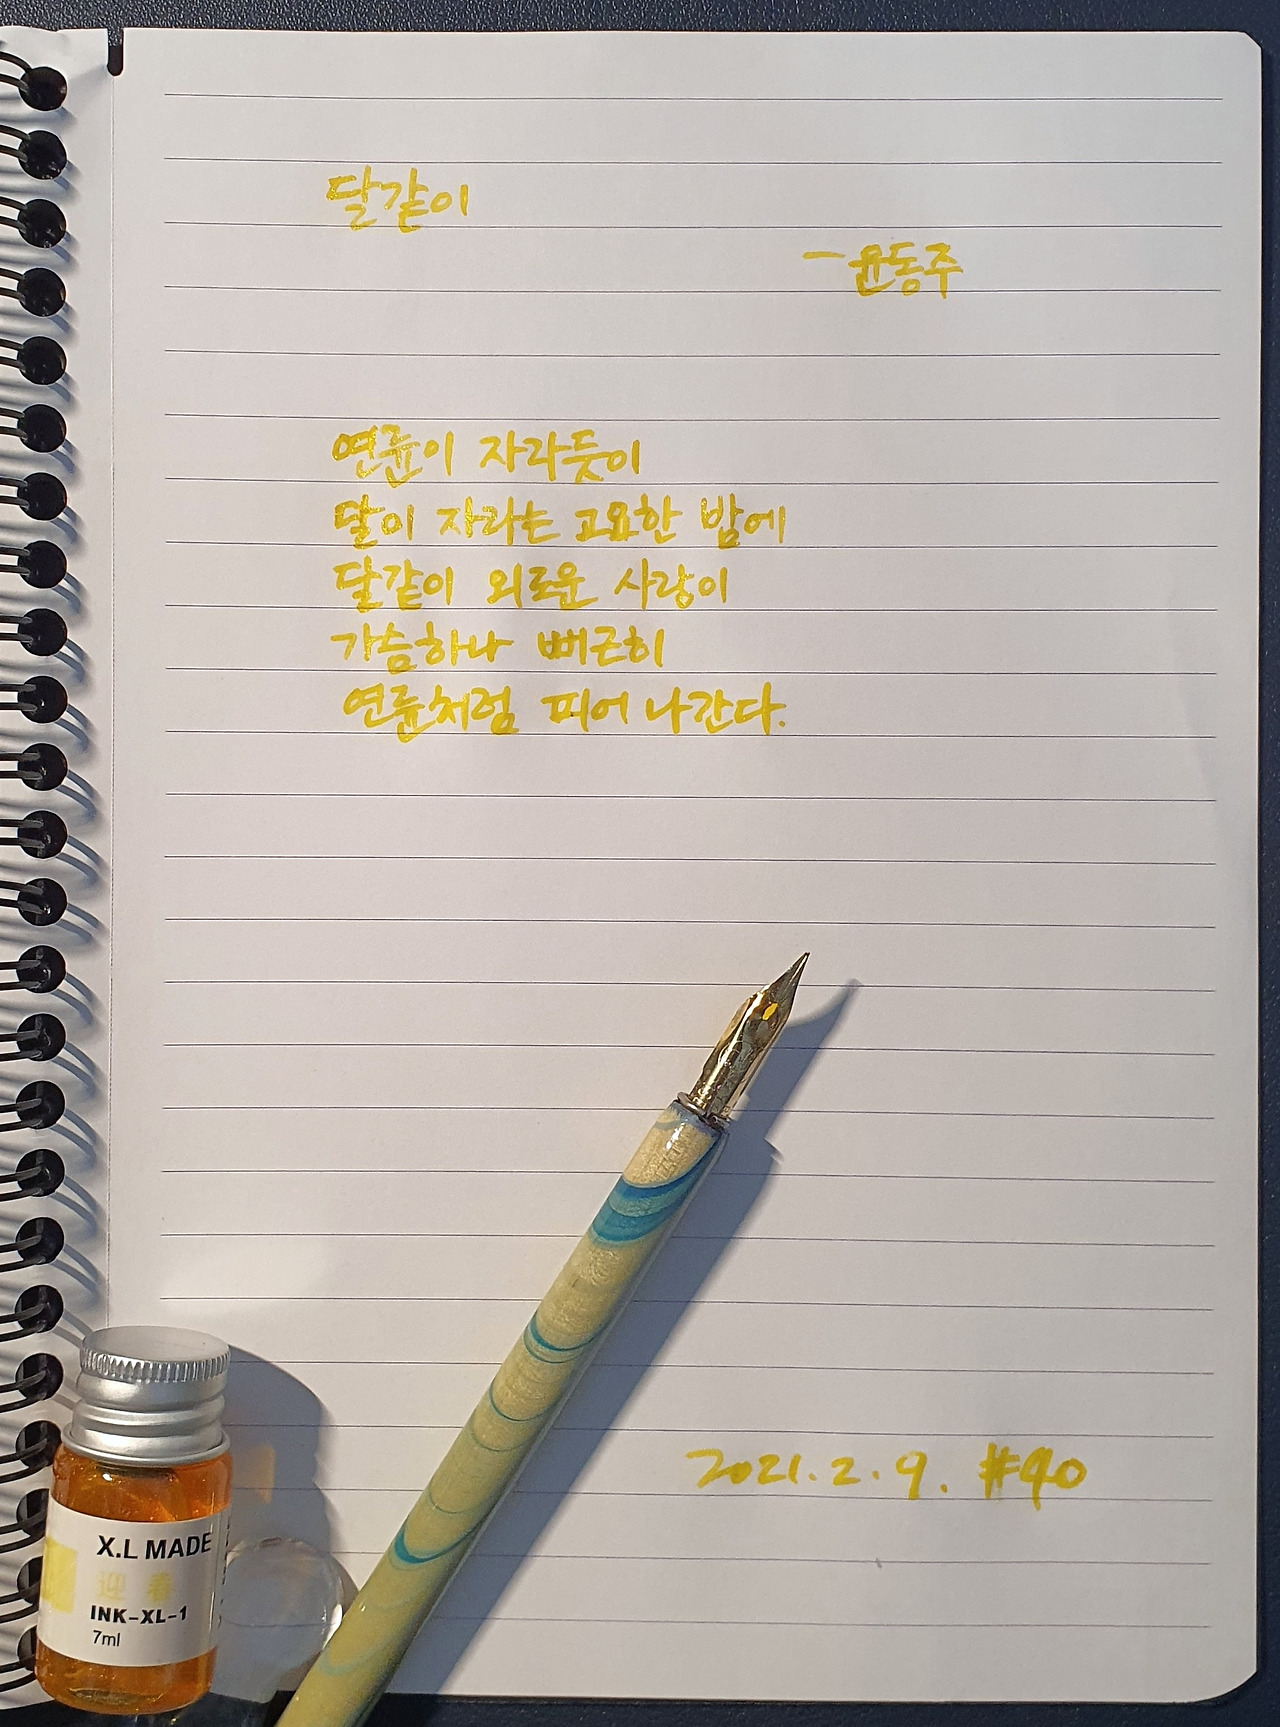 달같이
ㅡ윤동주
연륜이 자라듯이
달이 자라는 고요한 밤에
달같이 외로운 사랑이
가슴하나 뻐근히
연륜처럼 피어 나간다.
2021.2.9. #90
X.L MADE
迎春
INK-XL-1
7ml